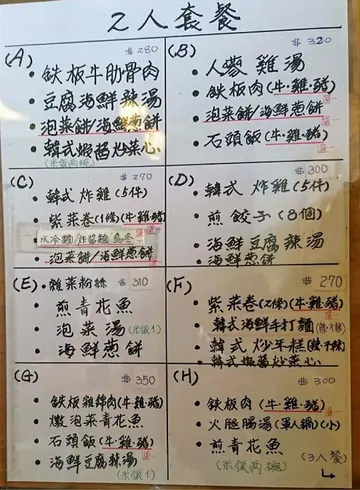 2人套餐
(A) #280
• 鉄板牛肋骨肉
• 豆腐海鮮辣湯
• 泡菜餅/海鮮葱餅
• 韓式蝦醬炒菜心
(米饭两碗)
(B) #320
• 人蔘雞湯
• 鉄板肉(牛·雞·豬)
• 泡菜餅/海鮮葱餅
• 石頭飯(牛·雞)
(C) #270
• 韓式炸雞(5件)
• 紫菜卷(1條)(牛·雞·豬)
• 水冷麵/炸醬麵
• 泡菜餅/海鮮葱餅
(D) #300
• 韓式炸雞(5件)
• 煎餃子(8個)
• 海鮮豆腐辣湯
海鮮葱餅
(E) • 雜菜粉絲 #310
• 煎青花魚
• 泡菜湯(米饭1)
• 海鮮葱餅
(F) #270
• 紫菜卷(2條)(牛·雞·豬)
• 韓式海鮮手打麵(辣·不辣)
• 韓式炒年糕(辣·不辣)
• 韓式蝦醬炒菜心
(G) #350
• 鉄板雞綿肉(牛·雞·豬)
• 燉泡菜青花魚
• 石頭飯(牛·雞)
• 海鮮豆腐辣湯(米饭1)
(H) #300
• 鉄板肉(牛·雞·豬)
• 火腿腸湯(軍人鍋)(小)
• 煎青花魚
(米饭两碗)
(3人餐)